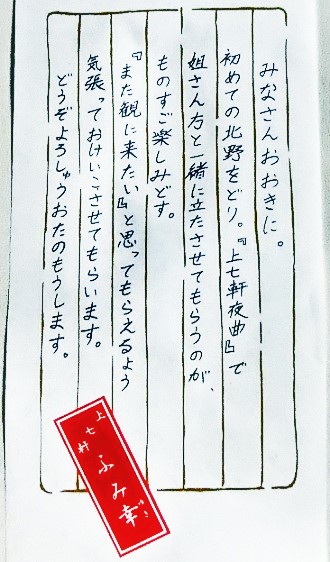 みなさんおおきに。
初めての北野をどり。『上七軒夜曲』で
姐さん方と一緒に立たさせてもらうのが、
ものすご楽しみどす。
『また観に来たい』と思ってもらえるよう
気張っておけいこさせてもらいます。
どうぞよろしゅうおたのもうします。
上七軒
ふみ幸